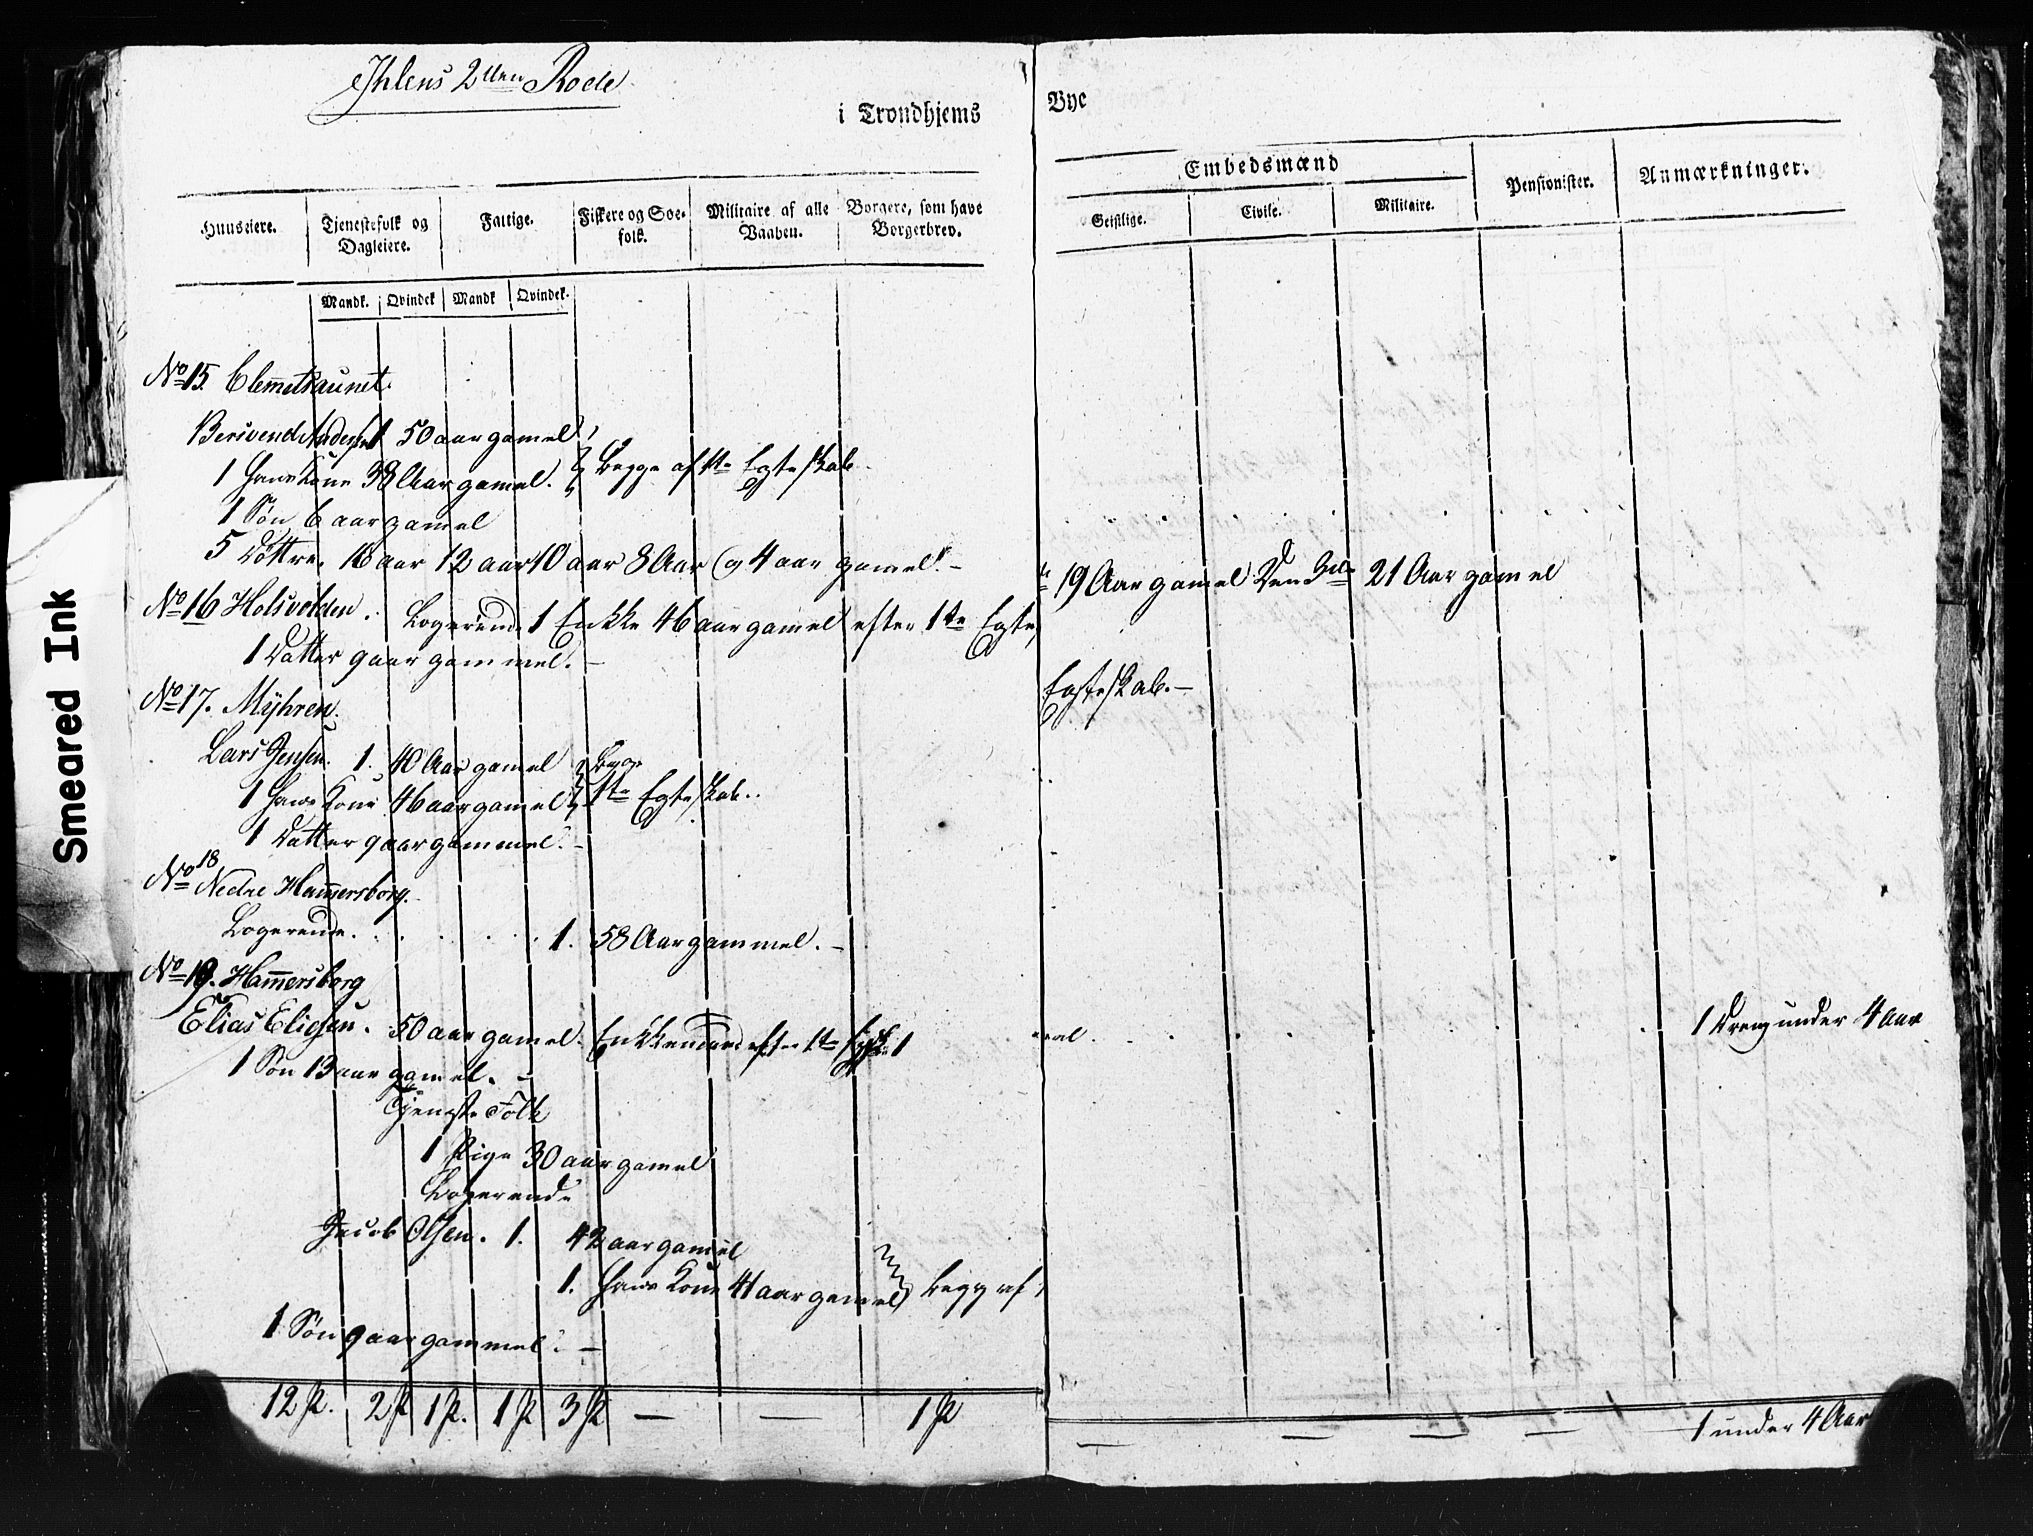 Ihlens 2den Rode
i Trondhjems
Bye
Huuseiere.
Tjenestefolk og Dagleiere.
Fattige.
Fiskere og Soe-folk.
Militaire af alle Vaaben.
Borgere, som have Borgerbrev.
Embedsmænd
Geistlige.
Civile.
Militaire.
Pensionister.
Anmærkninger.
Mandk. Qvindek Mandk Qvindek.
No 15. Clemetsaunet.
Bersvend Anders 1 50 aar gamel
1 Hans Kone 38 Aar gamel. Begge af 1te Egteskab
1 Søn 6 aar gamel
5 Døttre. 16 aar 12 aar 10 aar 8 Aar og 4 aar gamel. –
19 Aar gamel Den 3de 21 Aar gamel
No 16 Holsvolden. Logerende 1 Enkke 46 aar gamel efter 1te Egte
1 Datter 9 aar gammel. –
Egteskab. –
No 17. Myhren.
Lars Jensen. 1. 40 Aar gamel Begge
1 Hans Kone 46 aar gamel 1te Egteskab..
1 Datter 9 aar gammel. –
No 18 Nedre Hammersborg.
Logerende. 1. 58 Aar gammel. –
No 19. Hammersborg
Elias Eliesen. 50 aar gamel. Enkkemand efter 1te 1
1 Dreng under 4 Aar
1 Søn 13 aar gamel. –
Tjenste Folk
1 Pige 30 aar gamel
Logerende
Jacob Olsen. 1. 42 aar gamel
1. Hans Kone 41 aar gamel begge af
1 Søn 9 aar gammel. –
12 P. 2 P 1 P. 1 P 3 P — — 1 P
— — — — 1 under 4 Aar
Smeared Ink